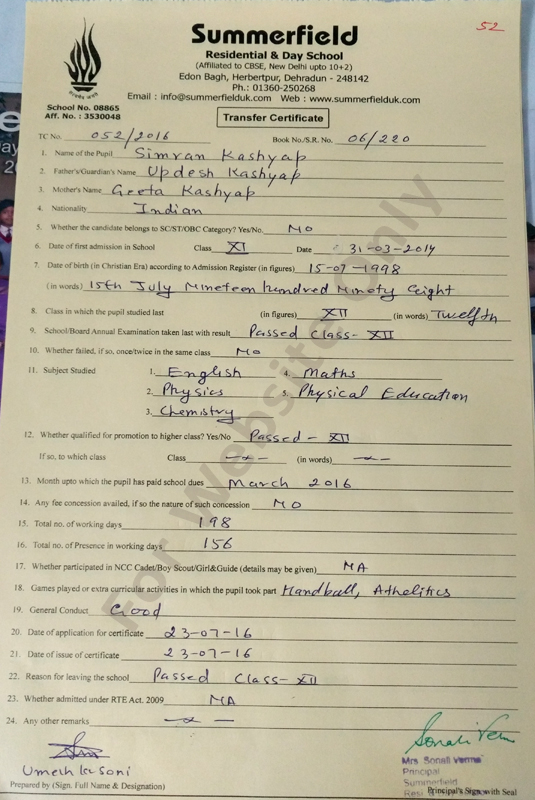 52
Summerfield
Residential & Day School
(Affiliated to CBSE, New Delhi upto 10+2)
Edon Bagh, Herbertpur, Dehradun - 248142
Ph.: 01360-250268
Email : info@summerfielduk.com Web : www.summerfielduk.com
School No. 08865
Aff. No. : 3530048
Transfer Certificate
TC No. 052/2016 Book No./S.R. No. 06/220
1. Name of the Pupil Simran Kashyap
2. Father's/Guardian's Name Updesh Kashyap
3. Mother's Name Geeta Kashyap
4. Nationality Indian
5. Whether the candidate belongs to SC/ST/OBC Category? Yes/No. No
6. Date of first admission in School Class XI Date 31-03-2014
7. Date of birth (in Christian Era) according to Admission Register (in figures) 15-07-1998
(in words) 15th July Nineteen hundred Ninety Eight
8. Class in which the pupil studied last (in figures) XII (in words) Twelfth
9. School/Board Annual Examination taken last with result Passed Class-XII
10. Whether failed, if so, once/twice in the same class No
11. Subject Studied 1. English 4. Maths
2. Physics 5. Physical Education
3. Chemistry
12. Whether qualified for promotion to higher class? Yes/No Passed - XII
If so, to which class Class -x- (in words) -x-
13. Month upto which the pupil has paid school dues March 2016
14. Any fee concession availed, if so the nature of such concession No
15. Total no. of working days 198
16. Total no. of Presence in working days 156
17. Whether participated in NCC Cadet/Boy Scout/Girl&Guide (details may be given) NA
18. Games played or extra curricular activities in which the pupil took part Handball, Athelitics
19. General Conduct Good
20. Date of application for certificate 23-07-16
21. Date of issue of certificate 23-07-16
22. Reason for leaving the school Passed Class-XII
23. Whether admitted under RTE Act. 2009 NA
24. Any other remarks -x-
Sonali Verma
Umesh k Soni
Mrs Sonali Verma
Principal
Summerfield
Prepared by (Sign. Full Name & Designation) Principal's Sign with Seal
For Website Only